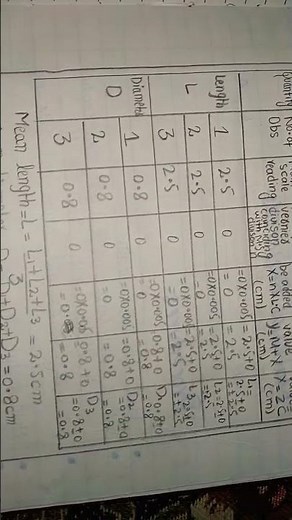 Quantity No. of scale vernier be added value
Obs reading division x=n×L.C y=M+x x=±c
coinciding (cm) (cm) (cm)
with MS
division
Length 1 2.5 0 =0×0.005 =2.5+0 L₁=
=0 =2.5 2.5±0
=±2.5
L 2 2.5 0 =0×0.005 =2.5+0 L₂=2.5±0
=0 =2.5 =2.5
3 2.5 0 =0×0.005 =2.5+0 L₃=2.5±0
=0 =2.5 =±2.5
Diameter 1 0.8 0 =0×0.005 0.8+0 D₁=0.8±0
=0 =0.8 =0.8
D 2 0.8 0 =0×0.005 =0.8+0 D₂
=0 =0.8 =0.8±0
=0.8
3 0.8 0 =0×0.005 0.8+0 D₃
=0.8 =0.8±0
=0.8
Mean length=L= L₁+L₂+L₃ =2.5cm
3
D₁+D₂+D₃=0.8cm